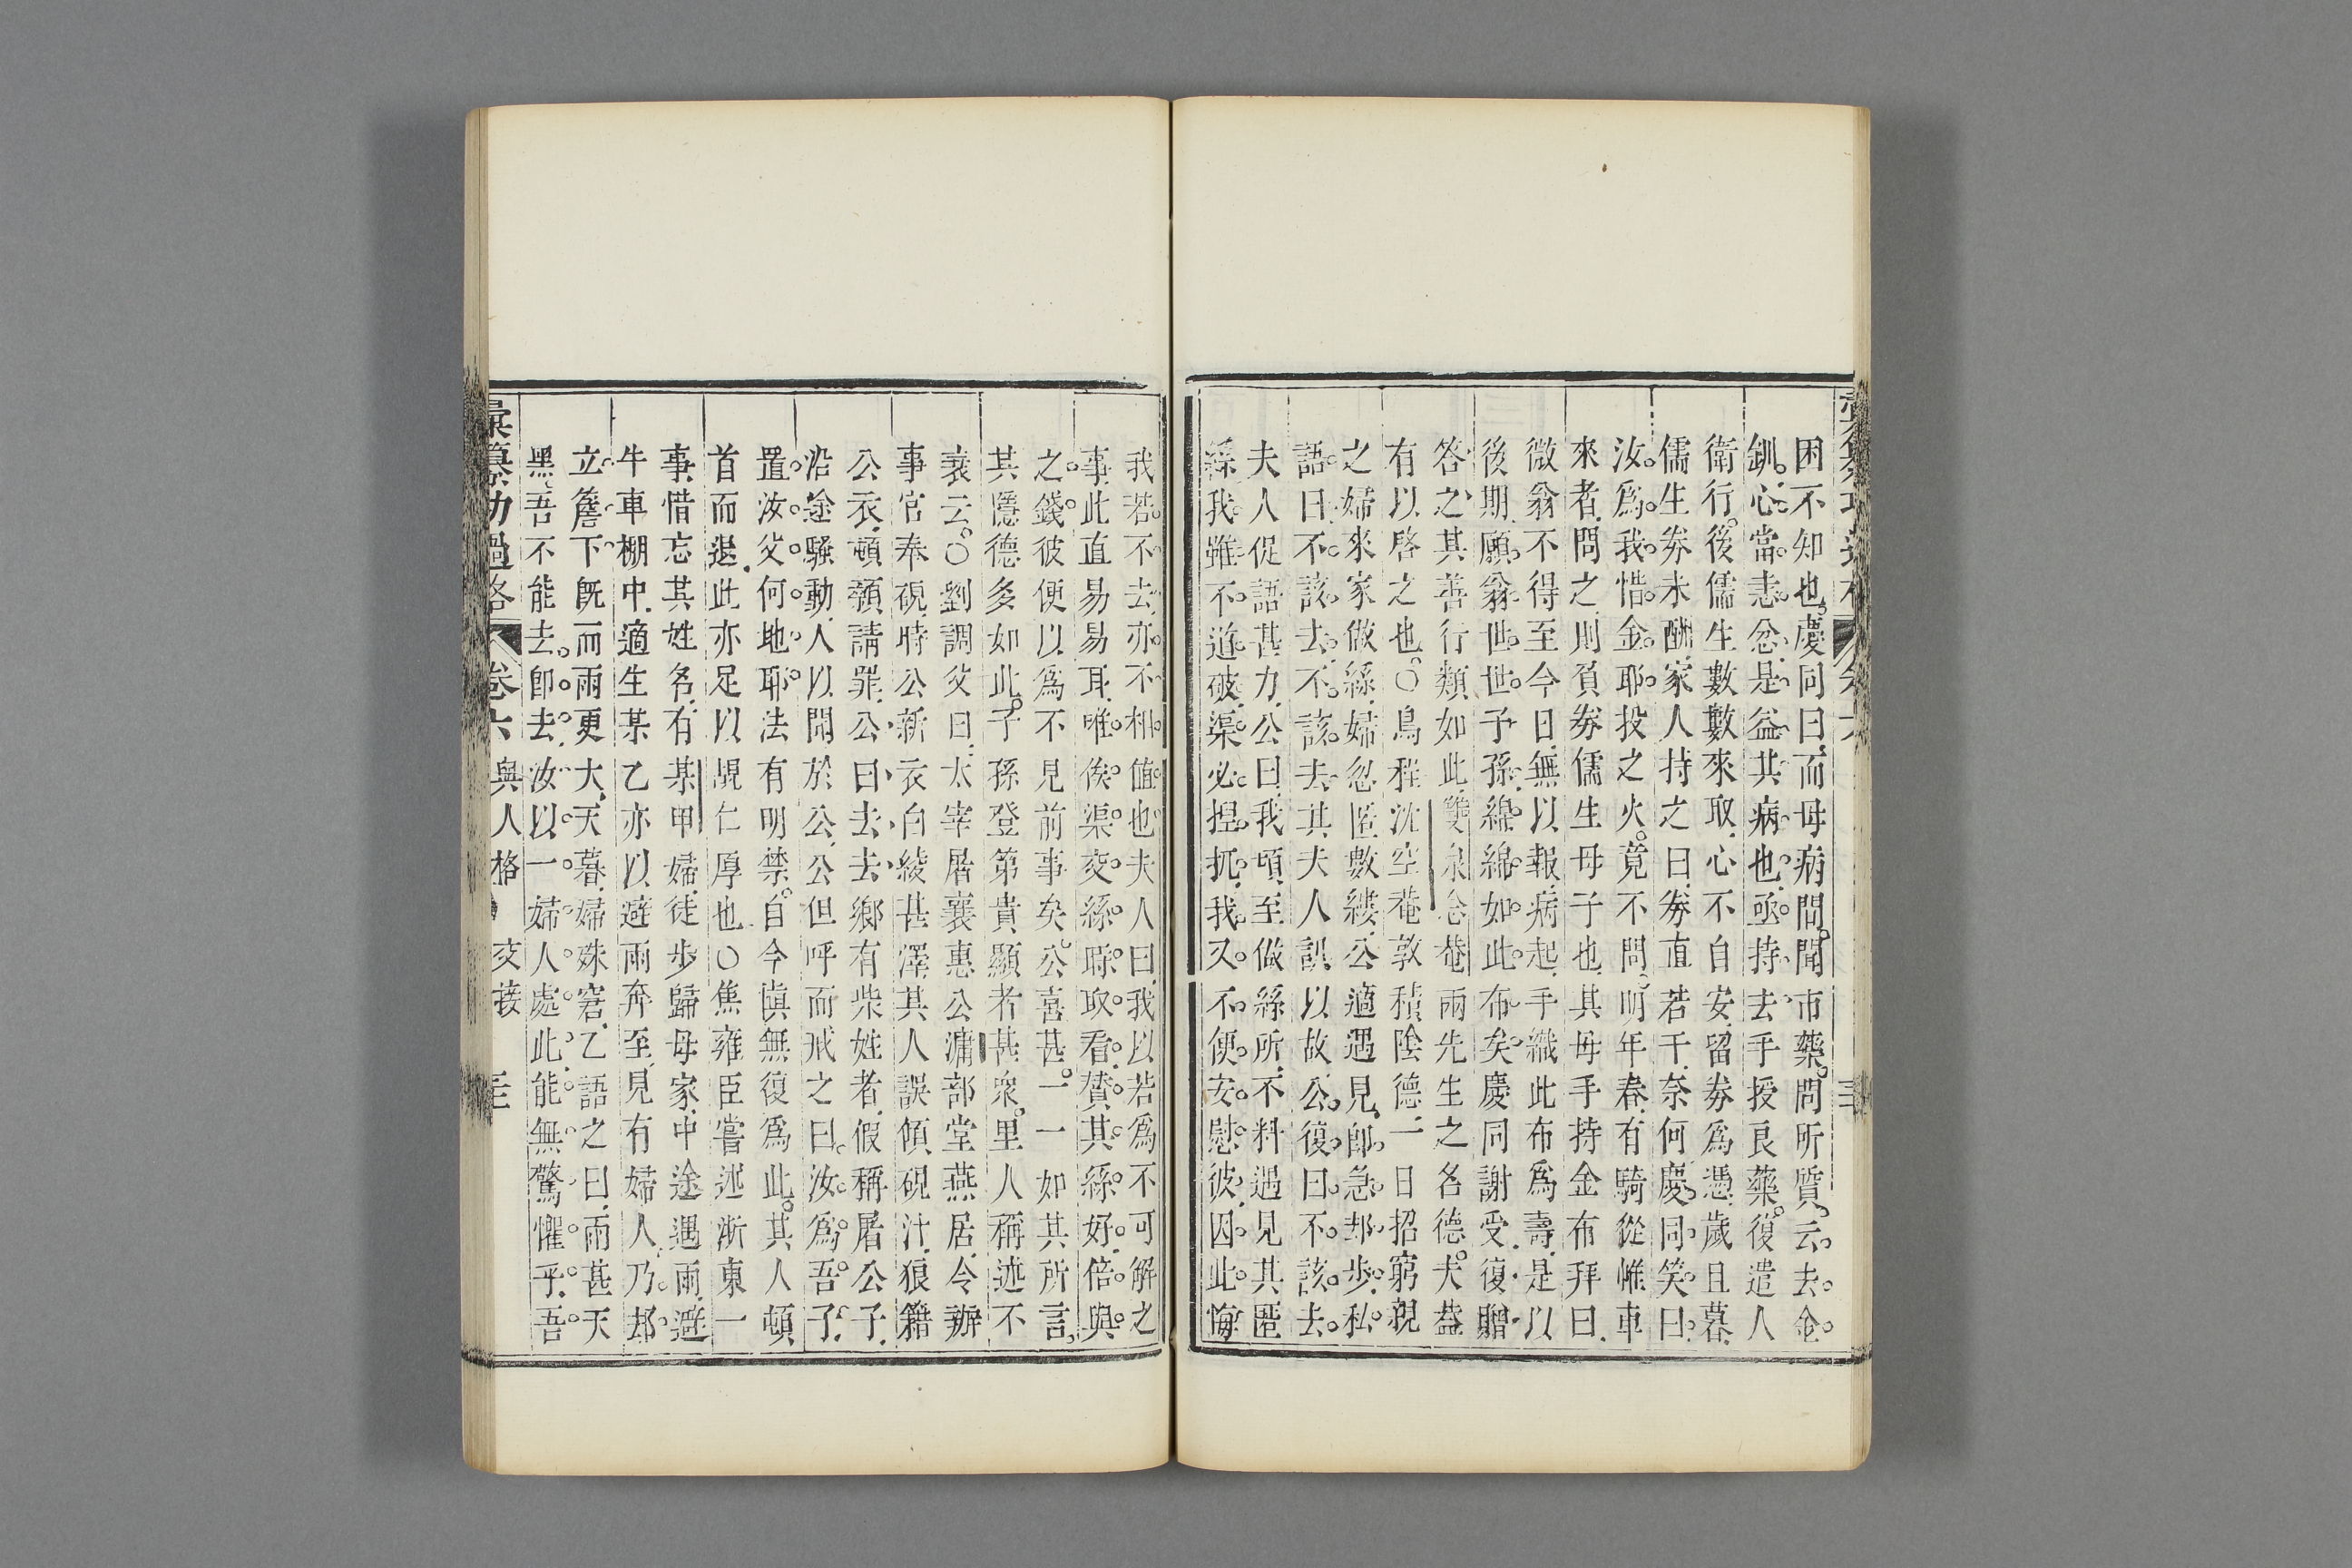 困不知也慶同曰而母病間聞市藥問所質云去金
釧心當恚忿是益其病也亟持去手授良藥復遣人
衛行後儒生數數來取心不自安留券爲憑歲且暮
儒生券未酬家人持之曰券直若干奈何慶同笑曰
汝爲我惜金耶投之火竟不問明年春有騎從帷車
來者問之則負券儒生母子也其母手持金布拜曰
微翁不得至今日無以報病起手織此布爲壽是以
後期願翁世世子孫綿綿如此布矣慶同謝受復贈
答之其善行類如此雙泉念菴兩先生之名德天蓋
有以啓之也○烏程沈空菴敦積陰德一日招窮親
之婦來家做絲婦忽匿數縷公適遇見即急却步私
語曰不該去不該去其夫人訊以故公復曰不該去
夫人促語甚力公曰我頃至做絲所不料遇見其匿
絲我雖不道破渠必揑扤我又不便安慰彼因此悔
我若不去亦不相値也夫人曰我以若爲不可解之
事此直易易耳唯俟渠交絲時取看賛其絲好倍與
之錢彼便以爲不見前事矣公喜甚一一如其所言
其隱德多如此子孫登第貴顯者甚衆里人稱述不
衰云○劉調父曰太宰屠襄惠公滽部堂燕居令辦
事官奉硯時公新衣白綾甚澤其人誤傾硯汁狼籍
公衣頓顙請罪公曰去去鄉有柴姓者假稱屠公子
沿途騷動人以聞於公公但呼而戒之曰汝爲吾子
置汝父何地耶法有明禁自今愼無復爲此其人頓
首而退此亦足以覘仁厚也○焦雍臣嘗述浙東一
事惜忘其姓名有某甲婦徒步歸母家中途遇雨避
牛車棚中適生某乙亦以避雨奔至見有婦人乃却
立簷下旣而雨更大天暮婦姝窘乙語之曰雨甚天
黑吾不能去卽去汝以一婦人處此能無驚懼乎吾
彙纂功過格 卷六 與人格 交接